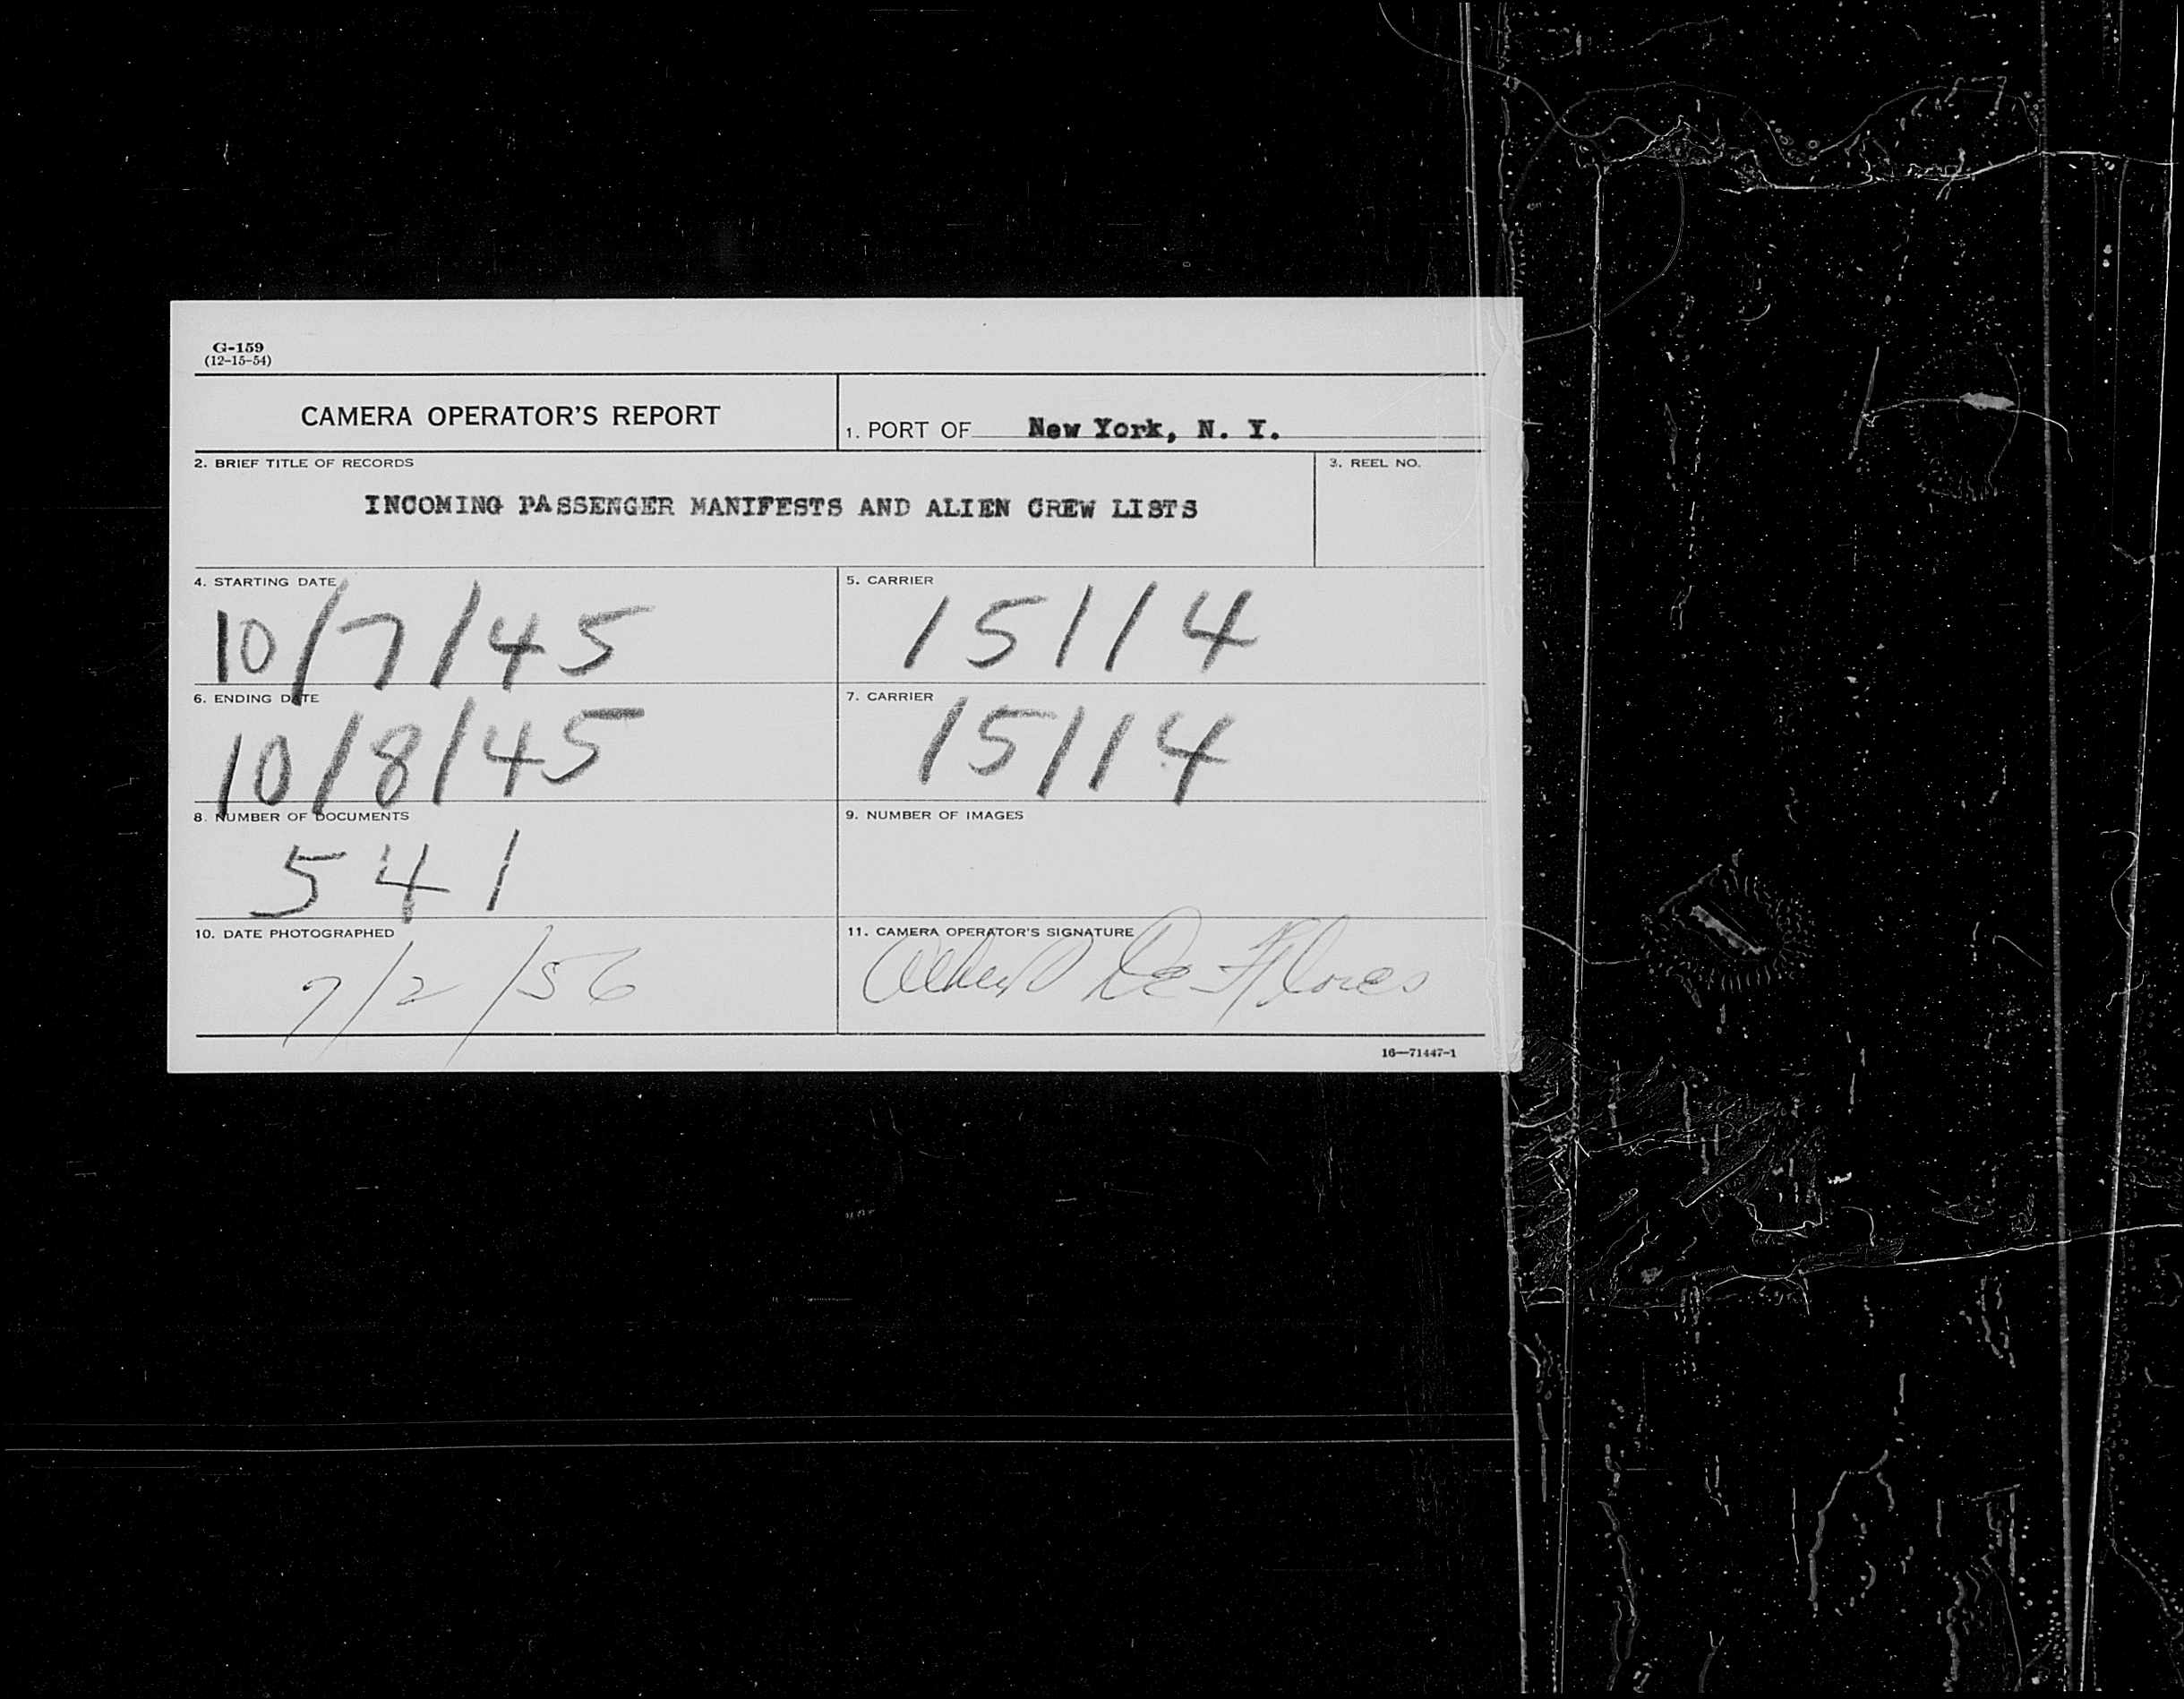 G-159
(12-15-54)
CAMERA OPERATOR'S REPORT
1. PORT OF New York, N. Y.
2. BRIEF TITLE OF RECORDS
3. REEL NO.
INCOMING PASSENGER MANIFESTS AND ALIEN CREW LISTS
4. STARTING DATE
10/7/45
5. CARRIER
15114
6. ENDING DATE
10/8/45
7. CARRIER
15114
8. NUMBER OF DOCUMENTS
541
9. NUMBER OF IMAGES
10. DATE PHOTOGRAPHED
7/2/56
11. CAMERA OPERATOR'S SIGNATURE
De Flores
16—71447-1